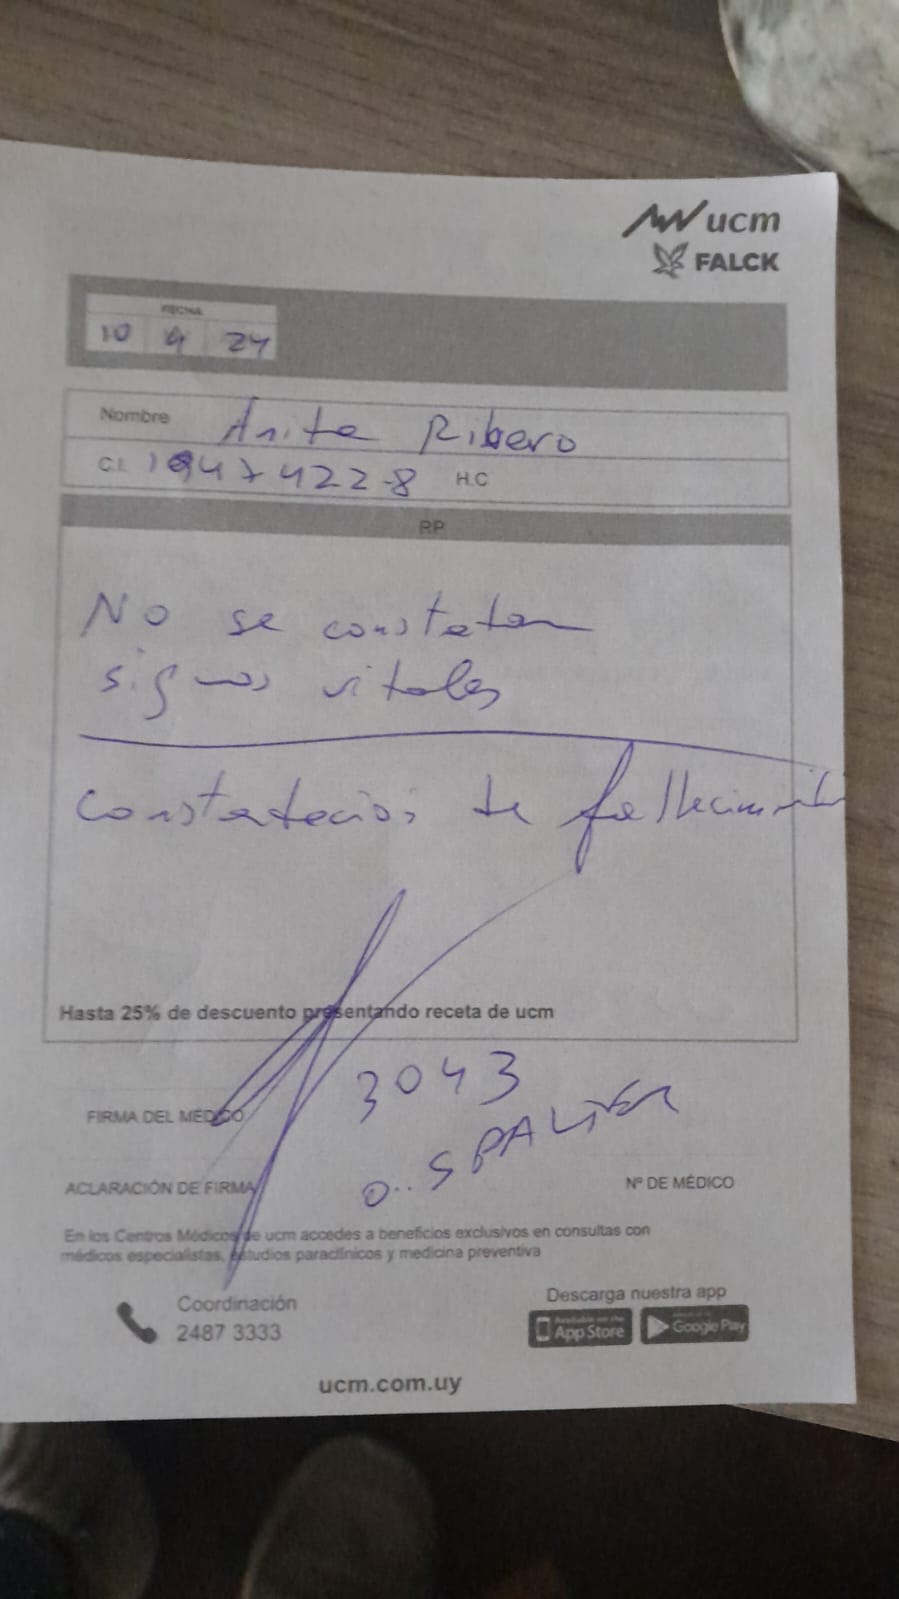 ucm
FALCK
FECHA
10 4 24
Nombre Anita Ribero
C.I. 1947422-8 H.C
RP
No se constatan
signos vitales
constatación de fallecimiento
Hasta 25% de descuento presentando receta de ucm
3043
FIRMA DEL MÉDICO
SPALTER
ACLARACIÓN DE FIRMA
Nº DE MÉDICO
En los Centros Médicos de ucm accedes a beneficios exclusivos en consultas con
médicos especialistas, estudios paraclínicos y medicina preventiva
Coordinación
2487 3333
Descarga nuestra app
App Store
Google Play
ucm.com.uy